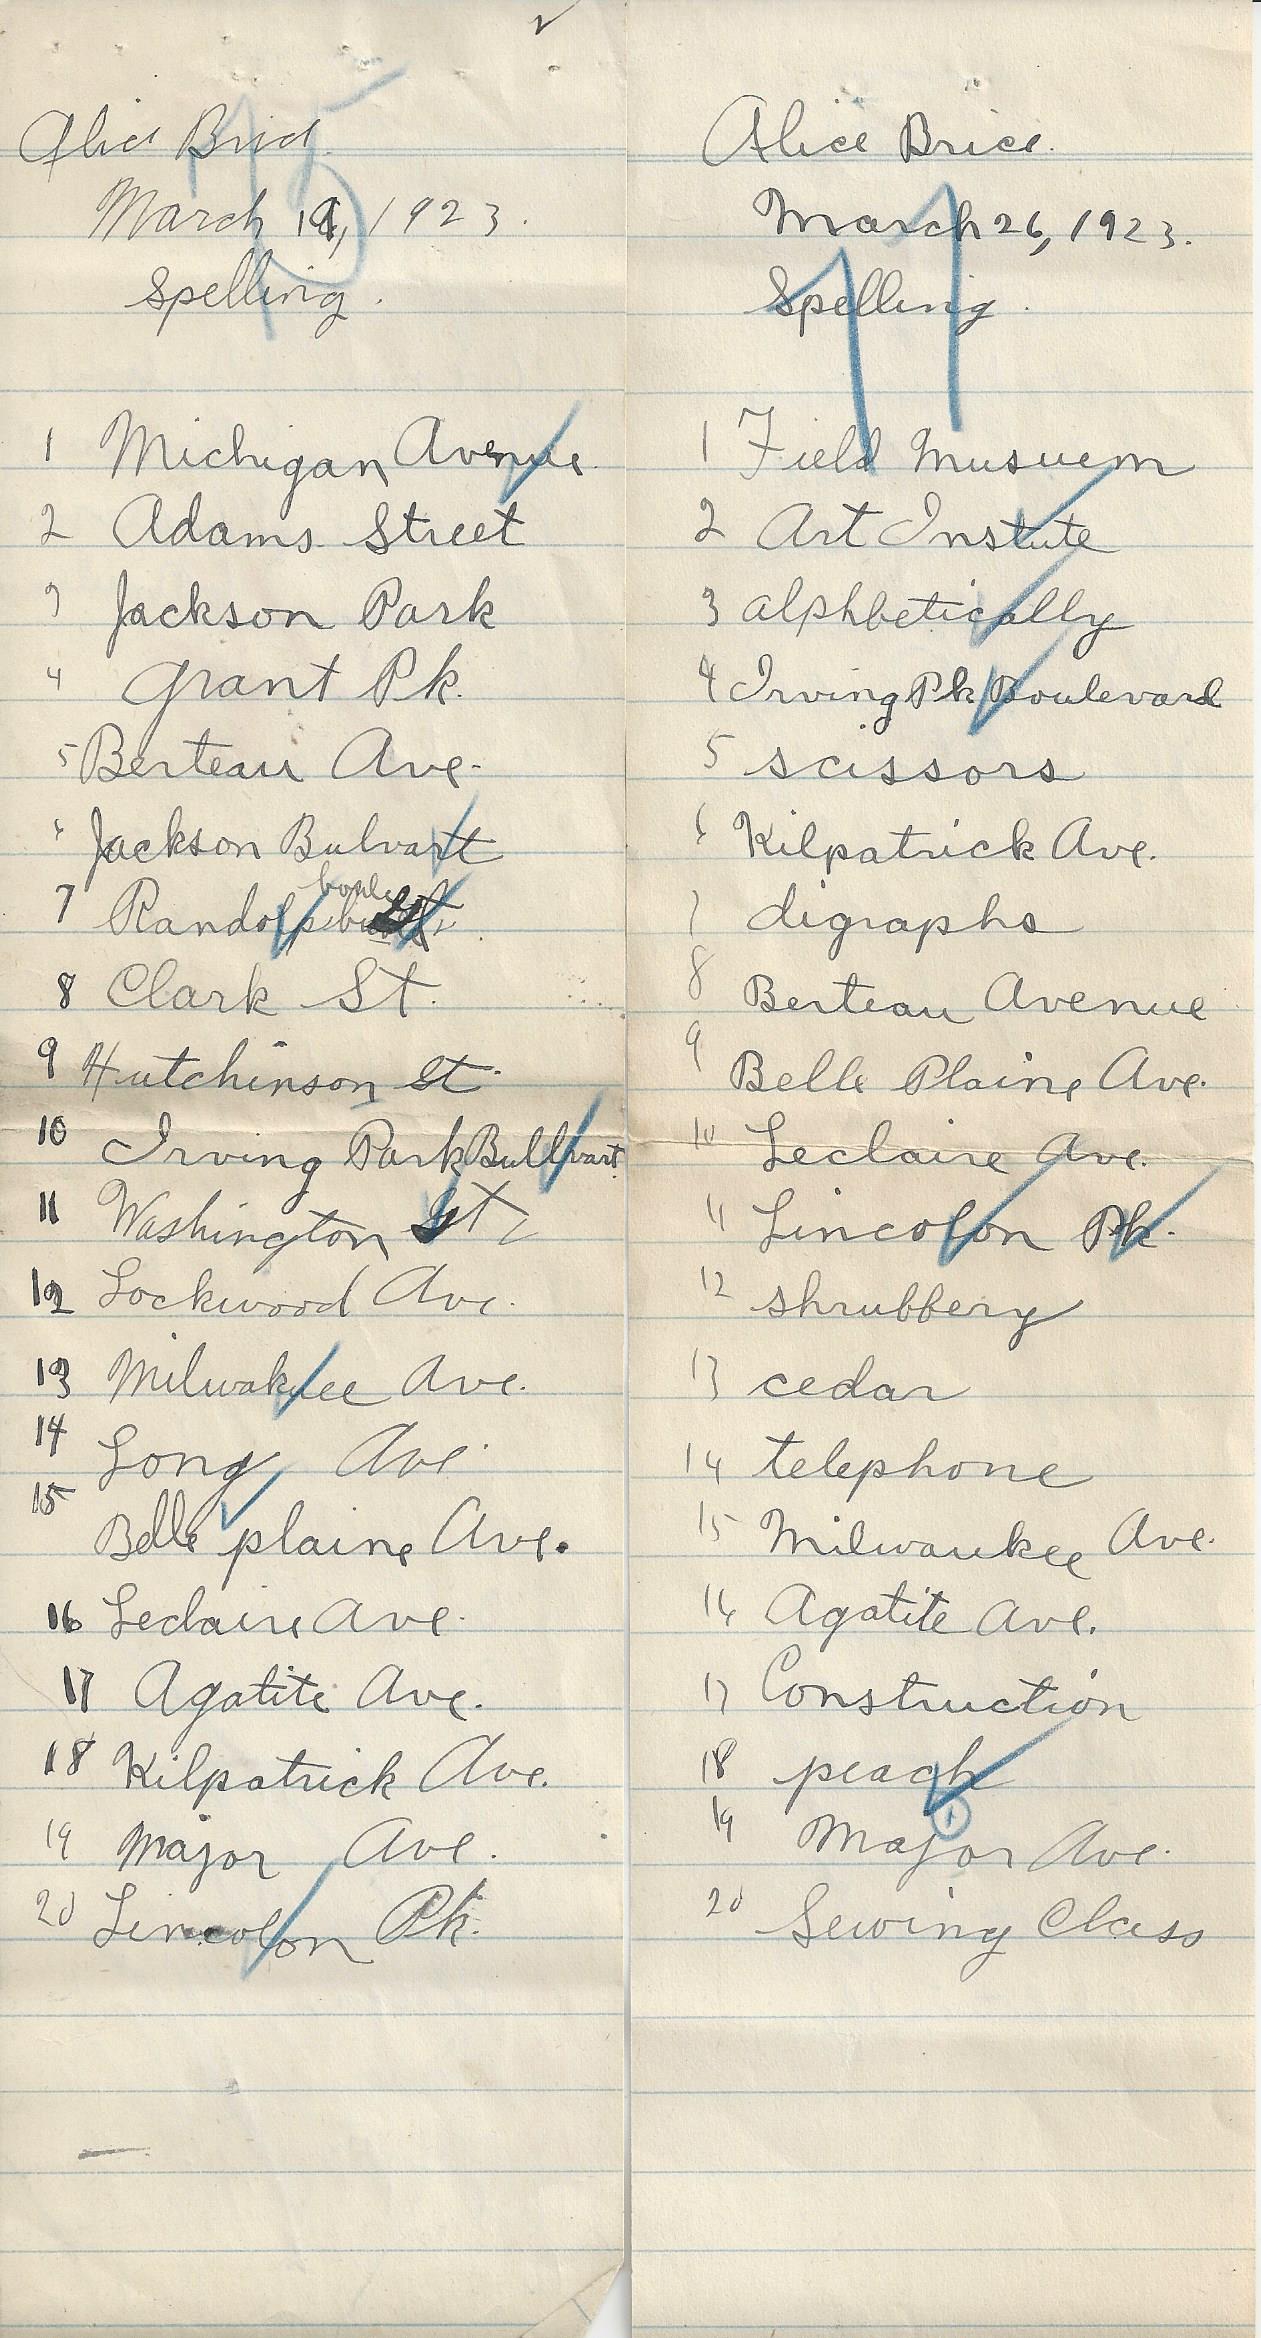 Alice Brice
March 19, 1923.
Spelling.
1 Michigan Avenue.
2 Adams Street
3 Jackson Park
4 Grant Pk.
5 Berteau Ave.
6 Jackson Bulvart
7 Randolp St.
8 Clark St.
9 Hutchinson St.
10 Irving Park Bullvart
11 Washington St,
12 Lockwood Ave.
13 Milwakuee Ave.
14 Long Ave.
15 Belle plaine Ave.
16 Leclaire Ave.
17 Agatite Ave.
18 Kilpatrick Ave.
19 Major Ave.
20 Lincolon Pk.
Alice Brice.
March 26, 1923.
Spelling.
11
1 Field Musuem
2 Art Instute
3 alphbetically
4 Irving Pk Boulevard
5 scissors
6 Kilpatrick Ave.
7 digraphs
8 Berteau Avenue
9 Belle Plaine Ave.
10 Leclaire Ave.
11 Lincolon Pk.
12 shrubbery
13 cedar
14 telephone
15 Milwaukee Ave.
16 Agatite Ave.
17 Construction
18 peach
19 Major Ave.
20 Sewing Class